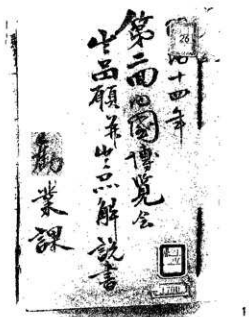 治十四年
第二回内国博覧会
出品願並出品解説書
勧業課
26
1